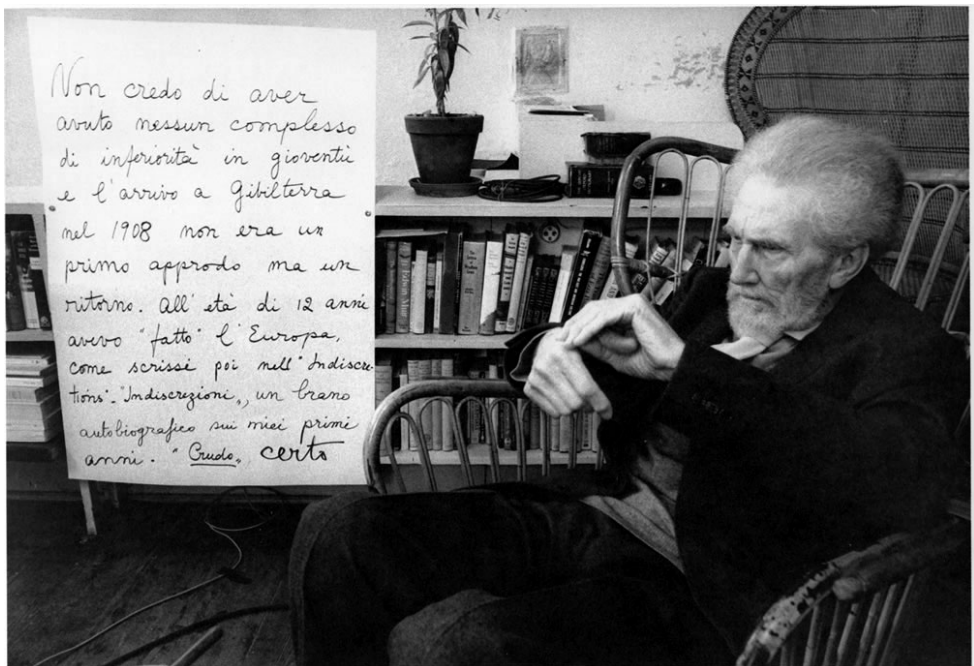 Non credo di aver
avuto nessun complesso
di inferiorità in gioventù
e l'arrivo a Gibilterra
nel 1908 non era un
primo approdo ma un
ritorno. All'età di 12 anni
avevo "fatto" l'Europa,
come scrissi poi nell'"Indiscre-
tions"-"Indiscrezioni", un brano
autobiografico sui miei primi
anni. "Crudo", certo